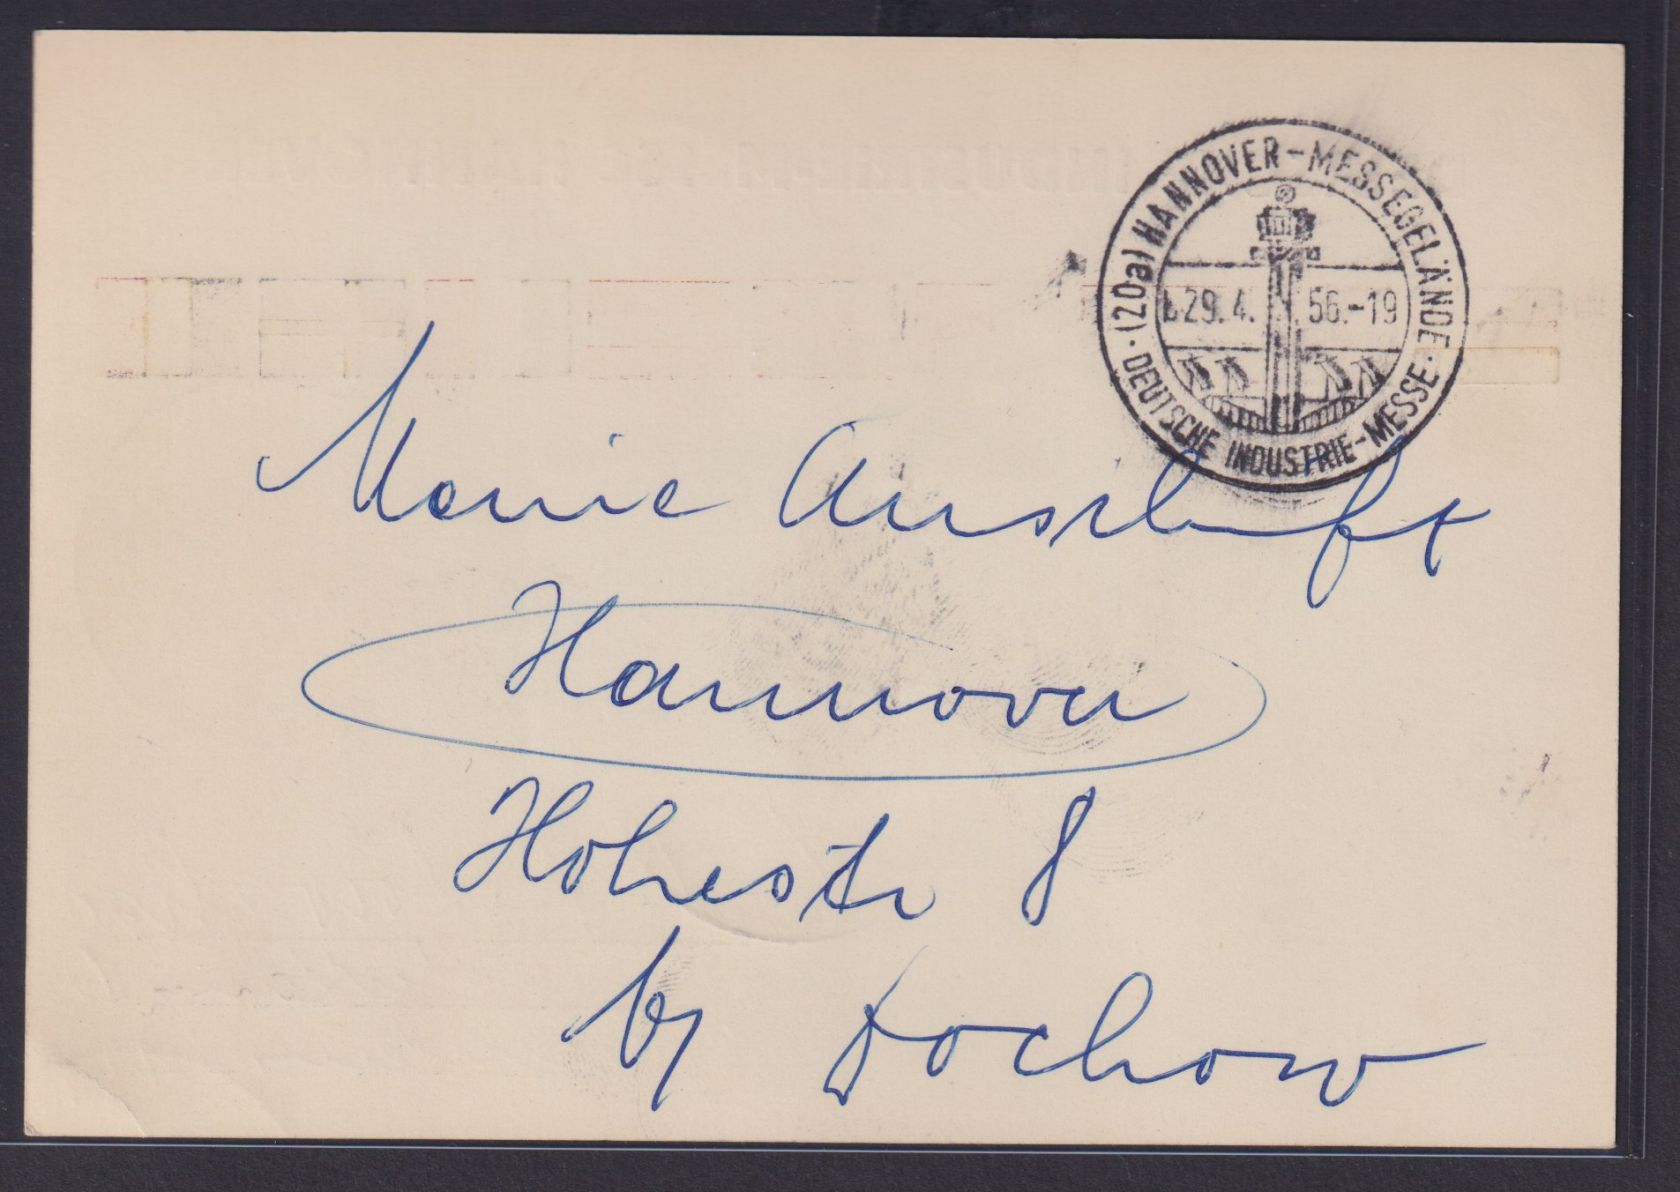 (20a) HANNOVER-MESSEGELÄNDE
29.4. 56.-19
DEUTSCHE INDUSTRIE-MESSE
Meine Anschrift
Hannover
Hohestr 8
by Dochow